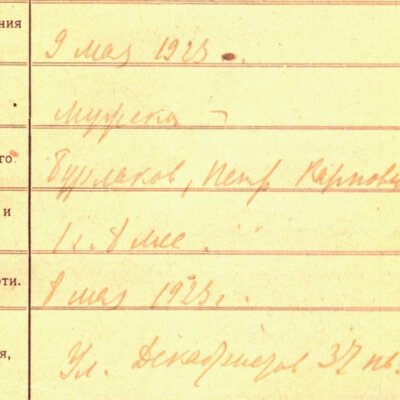 ния 9 мая 1923.
Мужска
го Бурлаков, Петр Карпови
и 1 г. 8 мес.
рти. 8 мая 1923 г.
я, Ул. Декабристов 37 кв.